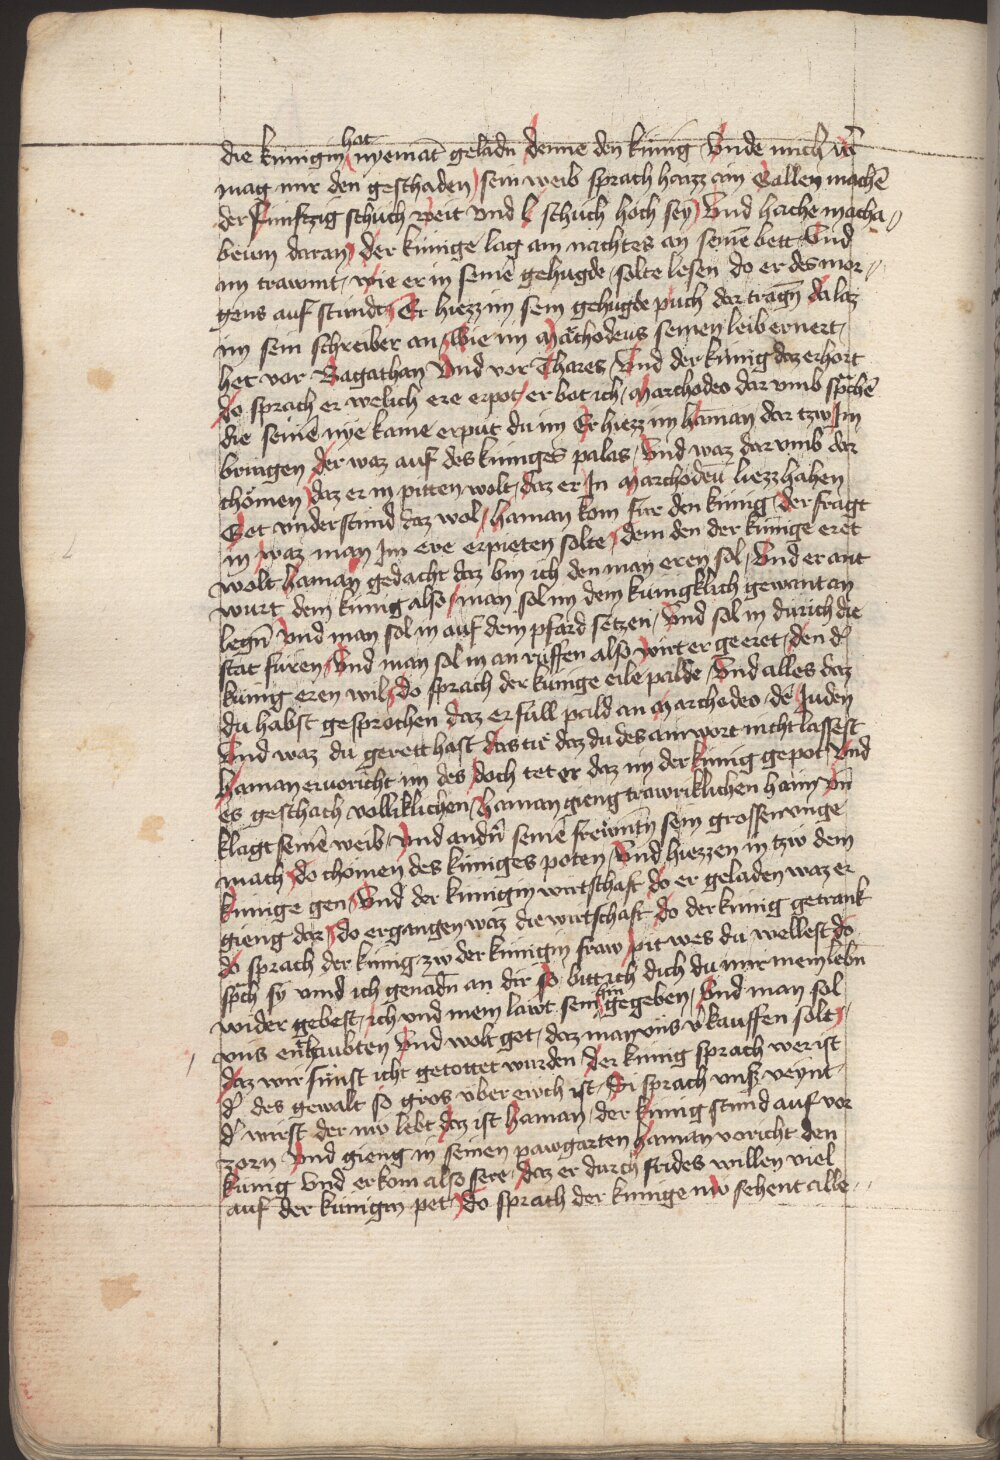 die kunigin hat nyemāt geladn̄ denne den kunig Unde mich w̄
mag mir den geschaden sein weib sprach haizz ain Gallen machē
der funftzig schuch weit vnd l schuch hoch sey Und hache macha
beum daran der kunige lag am nachtes an seinē bett Und
im trawmt wie er in seinē gehugde solte lesen do er des mor
gens auf stundt Er hiezz im sein gehugde puch dar tragn̄ da laz
im sein schreiber an Wie im Machodeus seinen leib ernert
het vor Bagathan Und vor Thares Und der kunig daz erhort
do sprach er welich ere erpot er bot ich Marchodeo dar vmb sprachē
die seinē nye kaine erput du im Er hiezz im haman dar tzw Im
bringen der waz auf des kuniges palas Und waz dar vmb dar
chomen daz er in pitten wolt daz er In Marchodeū liezz hahen
Got vnderstund daz wol haman kom fur den kunig der fragt
in waz man Im ere erpieten solte dem den der kunige eret
wolt haman gedacht daz bin ich den man eren sol Und er ant
wurt dem kunig also man sol im dem kunigklich gewant an
legn̄ Und man sol in auf dem pfard setzen Und sol in durich die
stat furen Und man sol in an ruffen also wirt er geeret den d'
kunig eren wil do sprach der kunige eile palde Und alles daz
du habst gesprochen daz erfull pald an Marchodeo dē Juden
Und waz du gerett hast das tu daz du des ain wort nicht lassest
haman ervoricht im des doch tet er daz im der kunig gepot Und
es geschach volliklichen haman gieng trawriklichen haim Vn̄
klagt seinē weib Und andn̄ seinē frewntn̄ sein grossen vnge
mach do chomen des kuniges poten Und hiezzen in tzw dem
kunige gen Und der kunigin wirtschaft do er geladen waz er
gieng dar do ergangen waz die wirtschaft do der kunig getrank
do sprach der kunig zw der kunigin fraw pit wes du wellest do
sprach sy vind ich genadn̄ an dir so bitt ich dich du mir mein lebn̄
wider gebest ich vnd mein lawt sein hin gegeben Und man sol
vns enthaubten Und wolt got daz man vns v'kauffen solt
daz wir sunst icht getottet wurden der kunig sprach wer ist
d' des gewalt so gros vber ewch ist Si sprach vnser veynt
d' wirst der nw lebt daz ist haman der kunig stund auf vor
zorn Und gieng in seinen pawgarten haman voricht den
kunig Und erkom also sere daz er durch frides willen viel
auf der kunigin pet do sprach der kunige nw sehent alle